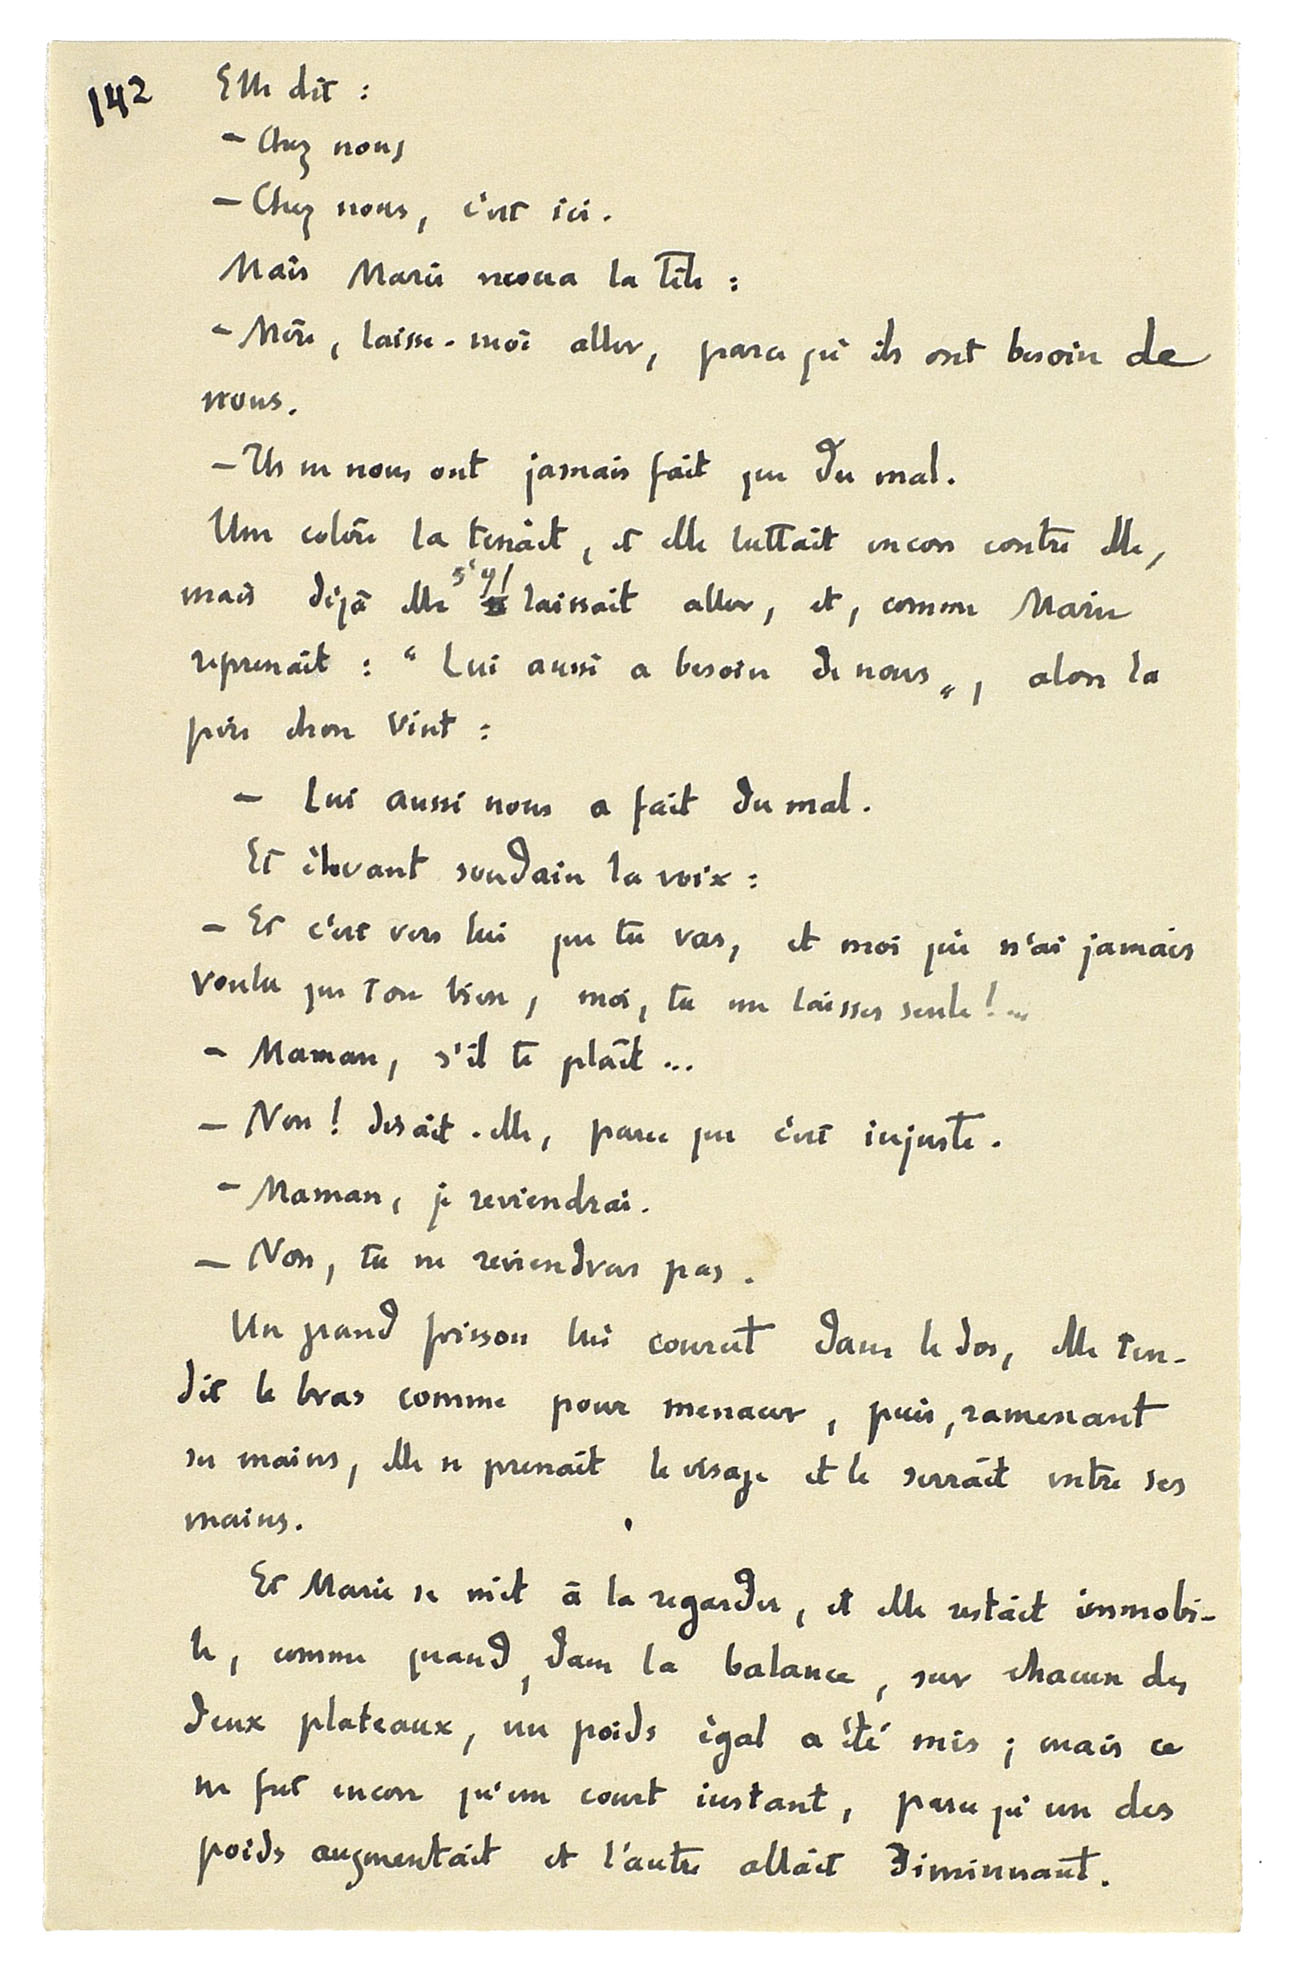 142
Elle dit :
– Chez nous
– Chez nous, c'est ici.
Mais Marie secoua la tête :
– Mère, laisse-moi aller, parce qu'ils ont besoin de
nous.
– Ils ne nous ont jamais fait que du mal.
Une colère la tenait, et elle luttait encore contre elle,
mais déjà elle s'y laissait aller, et, comme Marie
reprenait : " Lui aussi a besoin de nous ", alors la
pire chose vint :
– Lui aussi nous a fait du mal.
Et élevant soudain la voix :
– Et c'est vers lui que tu vas, et moi qui n'ai jamais
voulu que ton bien, moi, tu me laisses seule !...
– Maman, s'il te plaît...
– Non ! disait-elle, parce que c'est injuste.
– Maman, je reviendrai.
– Non, tu ne reviendras pas.
Un grand frisson lui courut dans le dos, elle ten-
dit le bras comme pour menacer, puis, ramenant
ses mains, elle se prenait le visage et le serrait entre ses
mains.
Et Marie se mit à la regarder, et elle restait immobi-
le, comme quand, dans la balance, sur chacun des
deux plateaux, un poids égal a été mis ; mais ce
ne fut encore qu'un court instant, parce qu'un des
poids augmentait et l'autre allait diminuant.